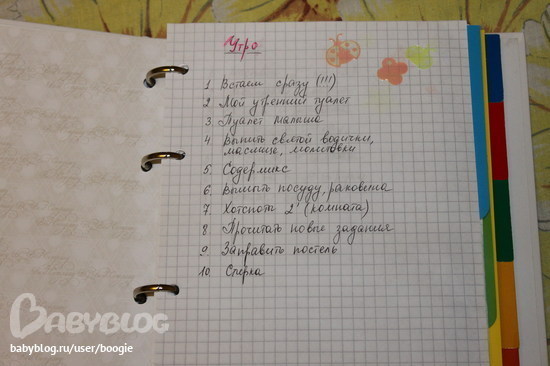 Утро
1 Встаём сразу (!!!)
2 Мой утренний туалет
3 Туалет малыша
4 Выпить святой водички,
маслице, молитовки
5. Содермикс
6. Вымыть посуду, раковина
7 Хотспоты 2' (комната)
8 Прочитать новые задания
9 Заправить постель
10. Стирка
BABYBLOG
babyblog.ru/user/boogie